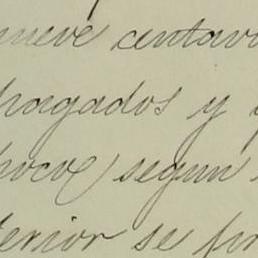 nueve centavo
pagados y
poco) segun
terior se pr